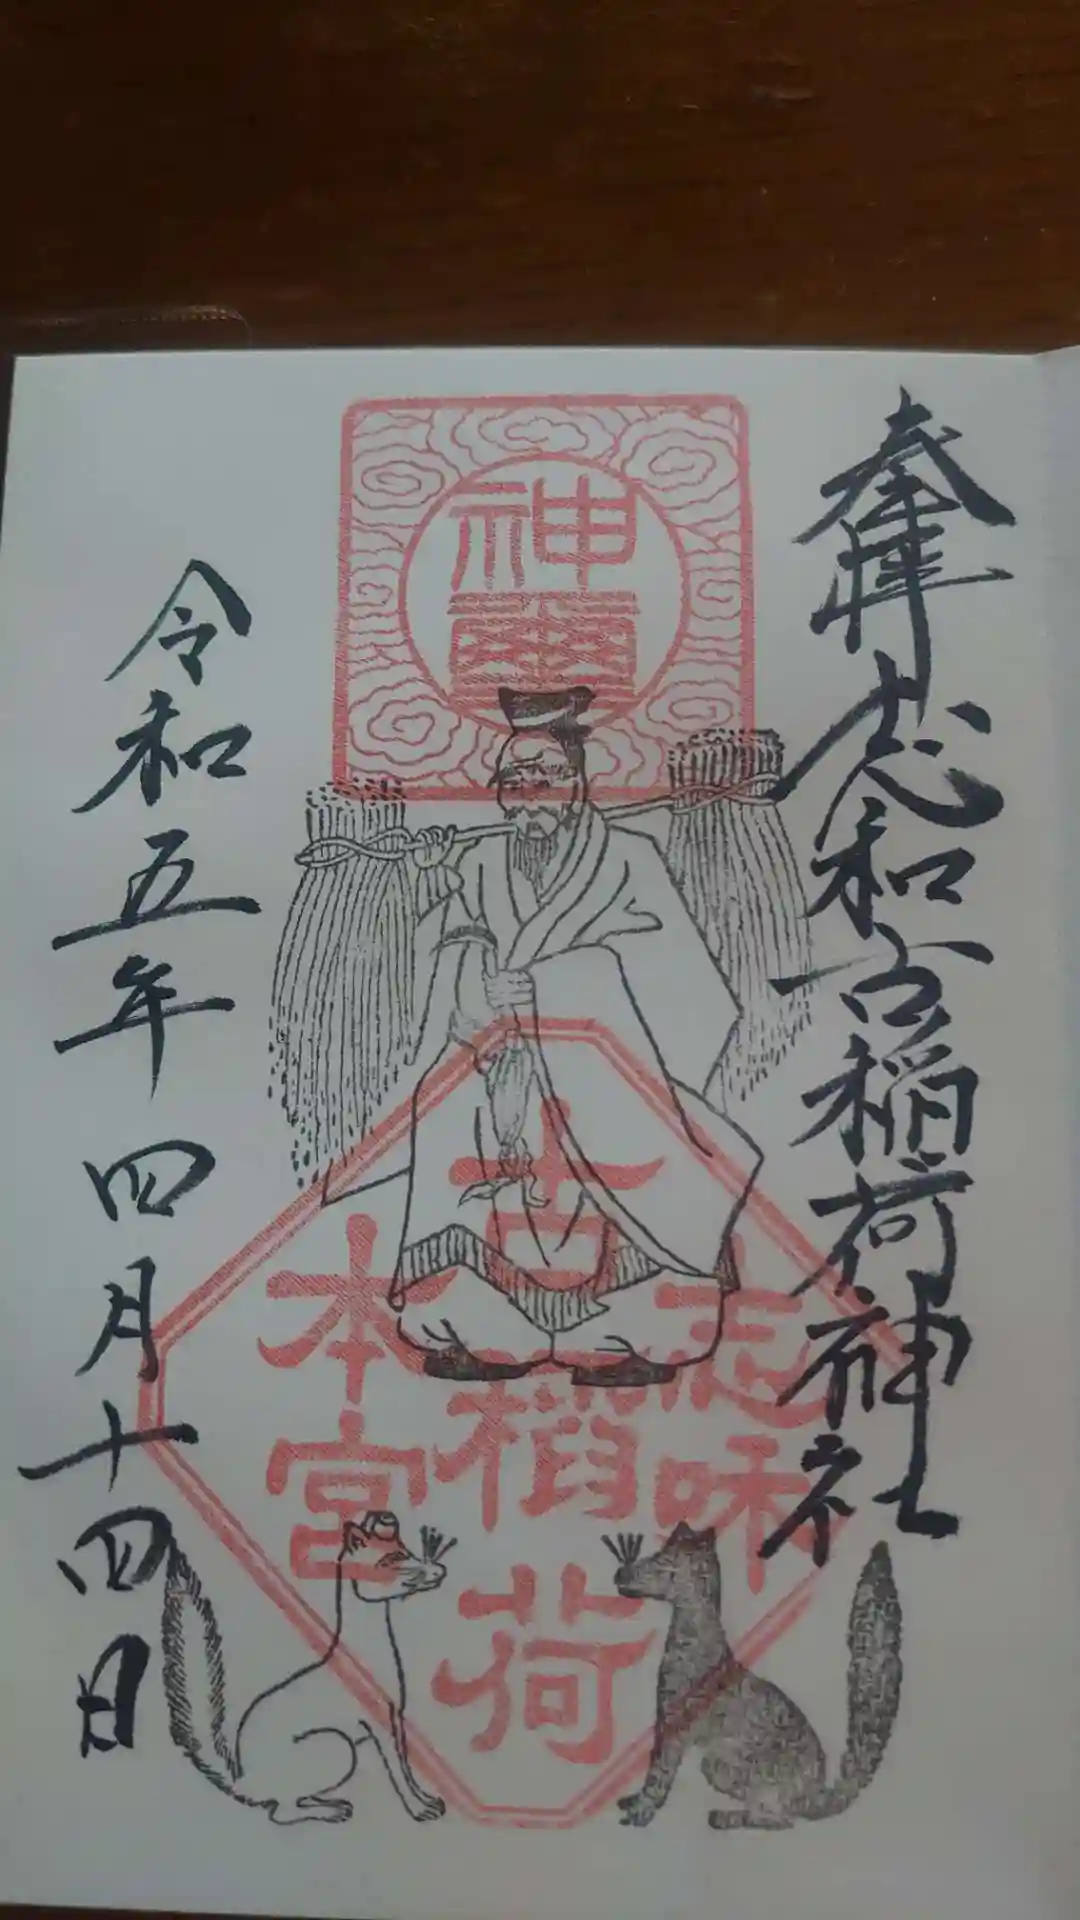 奉拝 志和古稲荷神社
神璽
志咊
古稲荷
本宮
令和五年四月十四日